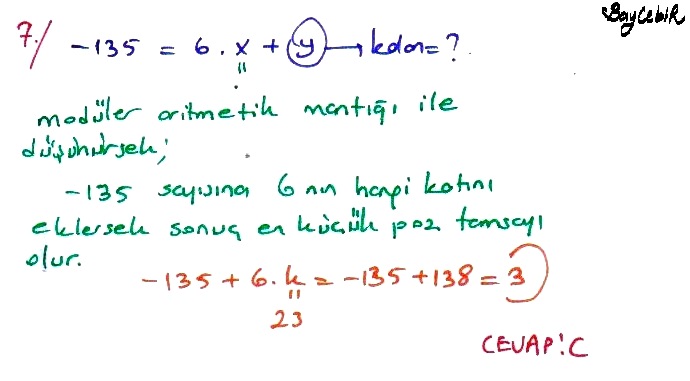 BayCebir
7./ -135 = 6.x + y → kalan = ?
modüler aritmetik mantığı ile
düşünürsek;
-135 sayısına 6 nın hangi katını
eklersek sonuç en küçük poz tamsayı
olur.
-135 + 6.k = -135 + 138 = 3
23
CEVAP: C